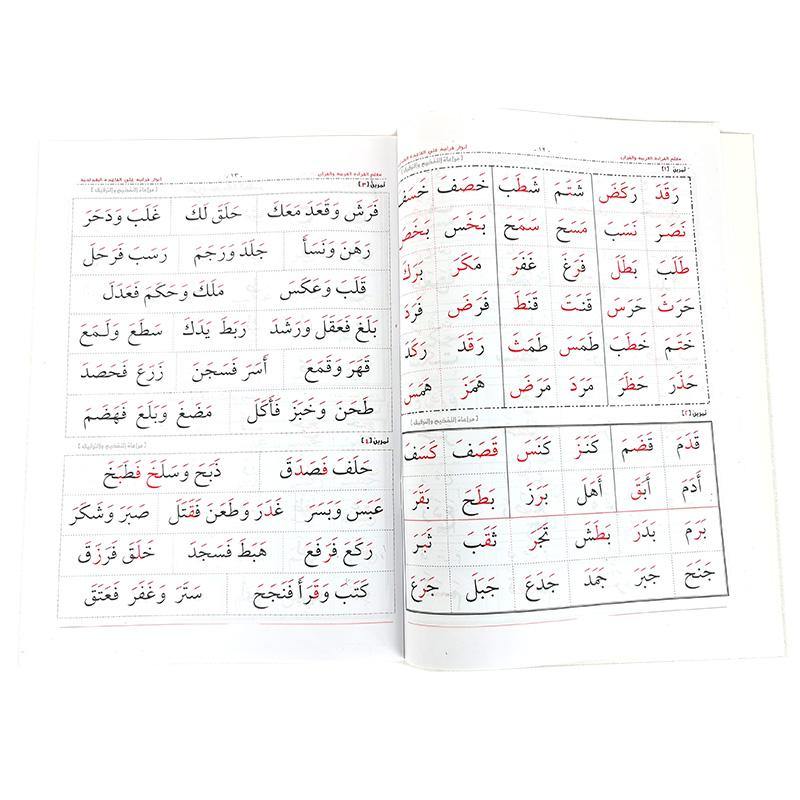 معلم القراءة العربية والقرآن - ١٢ - أنوار قرآنية على القاعدة البغدادية
تمرين [١] [مراعاة التفخيم والترقيق]
رَقَدَ رَكَضَ شَتَمَ شَطَبَ خَصَفَ خَسَفَ
نَصَرَ نَسَبَ مَسَحَ سَمَحَ بَخَسَ بَخَصَ
طَلَبَ بَطَلَ فَرَغَ غَفَرَ مَكَرَ بَرَكَ
حَرَثَ حَرَسَ قَنَتَ قَنَطَ فَرَضَ فَرَدَ
خَتَمَ خَطَبَ طَمَسَ طَمَثَ رَقَدَ رَكَدَ
حَذَرَ حَظَرَ مَرَدَ مَرَضَ هَمَزَ هَمَسَ
تمرين [٢] [مراعاة التفخيم والترقيق]
قَدَمَ قَضَمَ كَنَزَ كَنَسَ قَصَفَ كَسَفَ
أَدَمَ أَبَقَ أَهَلَ بَرَزَ بَطَحَ بَقَرَ
بَرَمَ بَدَرَ بَطَشَ تَجَرَ ثَقَبَ ثَبَرَ
جَنَحَ جَبَرَ جَمَدَ جَدَعَ جَبَلَ جَرَعَ
معلم القراءة العربية والقرآن - ١٣ - أنوار قرآنية على القاعدة البغدادية
تمرين [٣] [مراعاة التفخيم والترقيق]
فَرَشَ وَقَعَدَ مَعَكَ حَلَقَ لَكَ غَلَبَ وَدَحَرَ
رَهَنَ وَنَسَأَ جَلَدَ وَرَجَمَ رَسَبَ فَرَحَلَ
قَلَبَ وَعَكَسَ مَلَكَ وَحَكَمَ فَعَدَلَ
بَلَغَ فَعَقَلَ وَرَشَدَ رَبَطَ يَدَكَ سَطَعَ وَلَمَعَ
قَهَرَ وَقَمَعَ أَسَرَ فَسَجَنَ زَرَعَ فَحَصَدَ
طَحَنَ وَخَبَزَ فَأَكَلَ مَضَغَ وَبَلَعَ فَهَضَمَ
تمرين [٤] [مراعاة التفخيم والترقيق]
حَلَفَ فَصَدَقَ ذَبَحَ وَسَلَخَ فَطَبَخَ
عَبَسَ وَبَسَرَ غَدَرَ وَطَعَنَ فَقَتَلَ صَبَرَ وَشَكَرَ
رَكَعَ فَرَفَعَ هَبَطَ فَسَجَدَ خَلَقَ فَرَزَقَ
كَتَبَ وَقَرَأَ فَنَجَحَ سَتَرَ وَغَفَرَ فَعَتَقَ